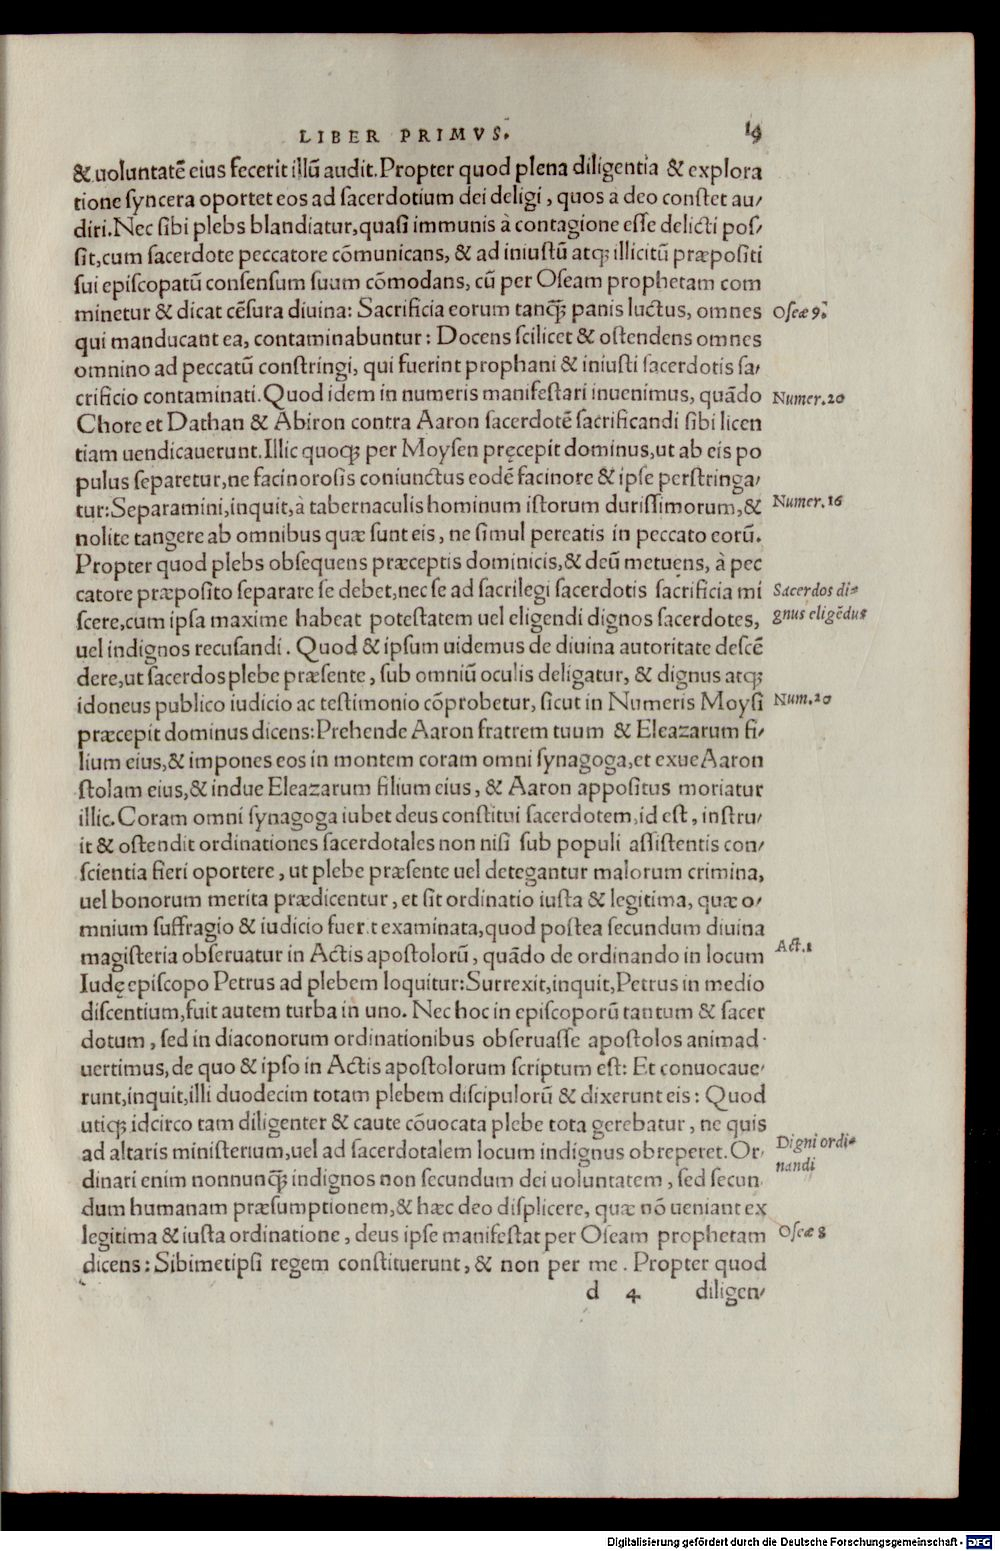 LIBER PRIMVS. 19
& uoluntatẽ eius fecerit illũ audit. Propter quod plena diligentia & explora
tione syncera oportet eos ad sacerdotium dei deligi, quos a deo constet au/
diri. Nec sibi plebs blandiatur, quasi immunis à contagione esse delicti pos/
sit, cum sacerdote peccatore cõmunicans, & ad iniustũ atq; illicitũ præpositi
sui episcopatũ consensum suum cõmodans, cũ per Oseam prophetam com
minetur & dicat cẽsura diuina: Sacrificia eorum tanq̃; panis luctus, omnes
Oseæ 9.
qui manducant ea, contaminabuntur: Docens scilicet & ostendens omnes
omnino ad peccatũ constringi, qui fuerint prophani & iniusti sacerdotis sa/
crificio contaminati. Quod idem in numeris manifestari inuenimus, quãdo
Numer. 20
Chore et Dathan & Abiron contra Aaron sacerdotẽ sacrificandi sibi licen
tiam uendicauerunt. Illic quoq; per Moysen pręcepit dominus, ut ab eis po
pulus separetur, ne facinorosis coniunctus eodẽ facinore & ipse perstringa/
tur: Separamini, inquit, à tabernaculis hominum istorum durissimorum, &
Numer. 16
nolite tangere ab omnibus quæ sunt eis, ne simul pereatis in peccato eorũ.
Propter quod plebs obsequens præceptis dominicis, & deũ metuens, à pec
catore præposito separare se debet, nec se ad sacrilegi sacerdotis sacrificia mi
Sacerdos di=
scere, cum ipsa maxime habeat potestatem uel eligendi dignos sacerdotes,
gnus eligẽdus
uel indignos recusandi. Quod & ipsum uidemus de diuina autoritate descẽ
dere, ut sacerdos plebe præsente, sub omniũ oculis deligatur, & dignus atq;
idoneus publico iudicio ac testimonio cõprobetur, sicut in Numeris Moysi
Num. 20
præcepit dominus dicens: Prehende Aaron fratrem tuum & Eleazarum fi/
lium eius, & impones eos in montem coram omni synagoga, et exue Aaron
stolam eius, & indue Eleazarum filium eius, & Aaron appositus moriatur
illic. Coram omni synagoga iubet deus constitui sacerdotem, id est, instru/
it & ostendit ordinationes sacerdotales non nisi sub populi assistentis con/
scientia fieri oportere, ut plebe præsente uel detegantur malorum crimina,
uel bonorum merita prædicentur, et sit ordinatio iusta & legitima, quæ o/
mnium suffragio & iudicio fuerit examinata, quod postea secundum diuina
magisteria obseruatur in Actis apostolorũ, quãdo de ordinando in locum
Act. 1
Iudę episcopo Petrus ad plebem loquitur: Surrexit, inquit, Petrus in medio
discentium, fuit autem turba in uno. Nec hoc in episcoporũ tantum & sacer
dotum, sed in diaconorum ordinationibus obseruasse apostolos animad
uertimus, de quo & ipso in Actis apostolorum scriptum est: Et conuocaue/
runt, inquit, illi duodecim totam plebem discipulorũ & dixerunt eis: Quod
utiq; idcirco tam diligenter & caute cõuocata plebe tota gerebatur, ne quis
ad altaris ministerium, uel ad sacerdotalem locum indignus obreperet. Or/
Digni ordi=
dinari enim nonnunq̃; indignos non secundum dei uoluntatem, sed secun
nandi
dum humanam præsumptionem, & hæc deo displicere, quæ nõ ueniant ex
legitima & iusta ordinatione, deus ipse manifestat per Oseam prophetam
Oseæ 8
dicens: Sibimetipsi regem constituerunt, & non per me. Propter quod
d 4 diligen/
Digitalisierung gefördert durch die Deutsche Forschungsgemeinschaft - DFG